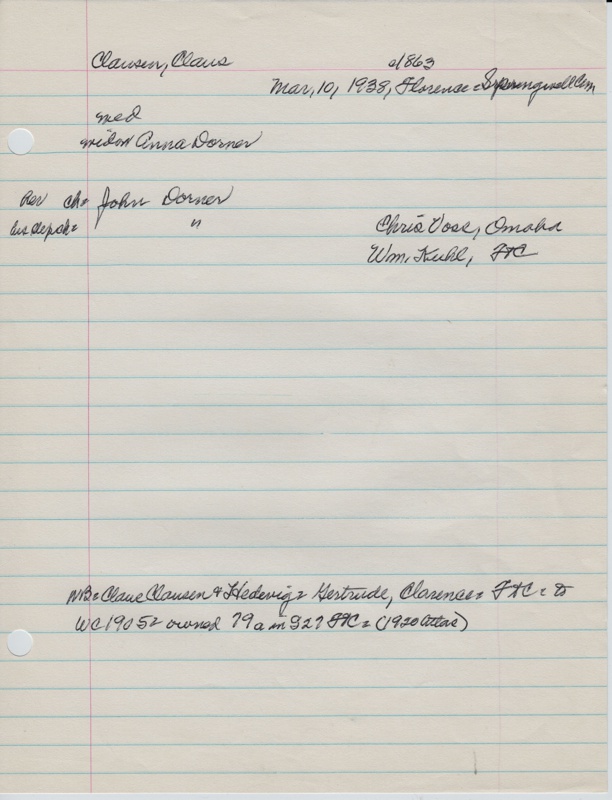 Clausen, Claus c/863
Mar, 10, 1938, Florence = Springwell Cem
med
widow Anna Dorner
Rev ch = John Dorner
his dep ch = "
Chris Voss, Omaha
Wm. Kuhl, FtC
NB = Claus Clausen & Hedevig = Gertrude, Clarence = FtC = to
WC 1905 = owned 79 a in S27 FtC = (1920 Atlas)